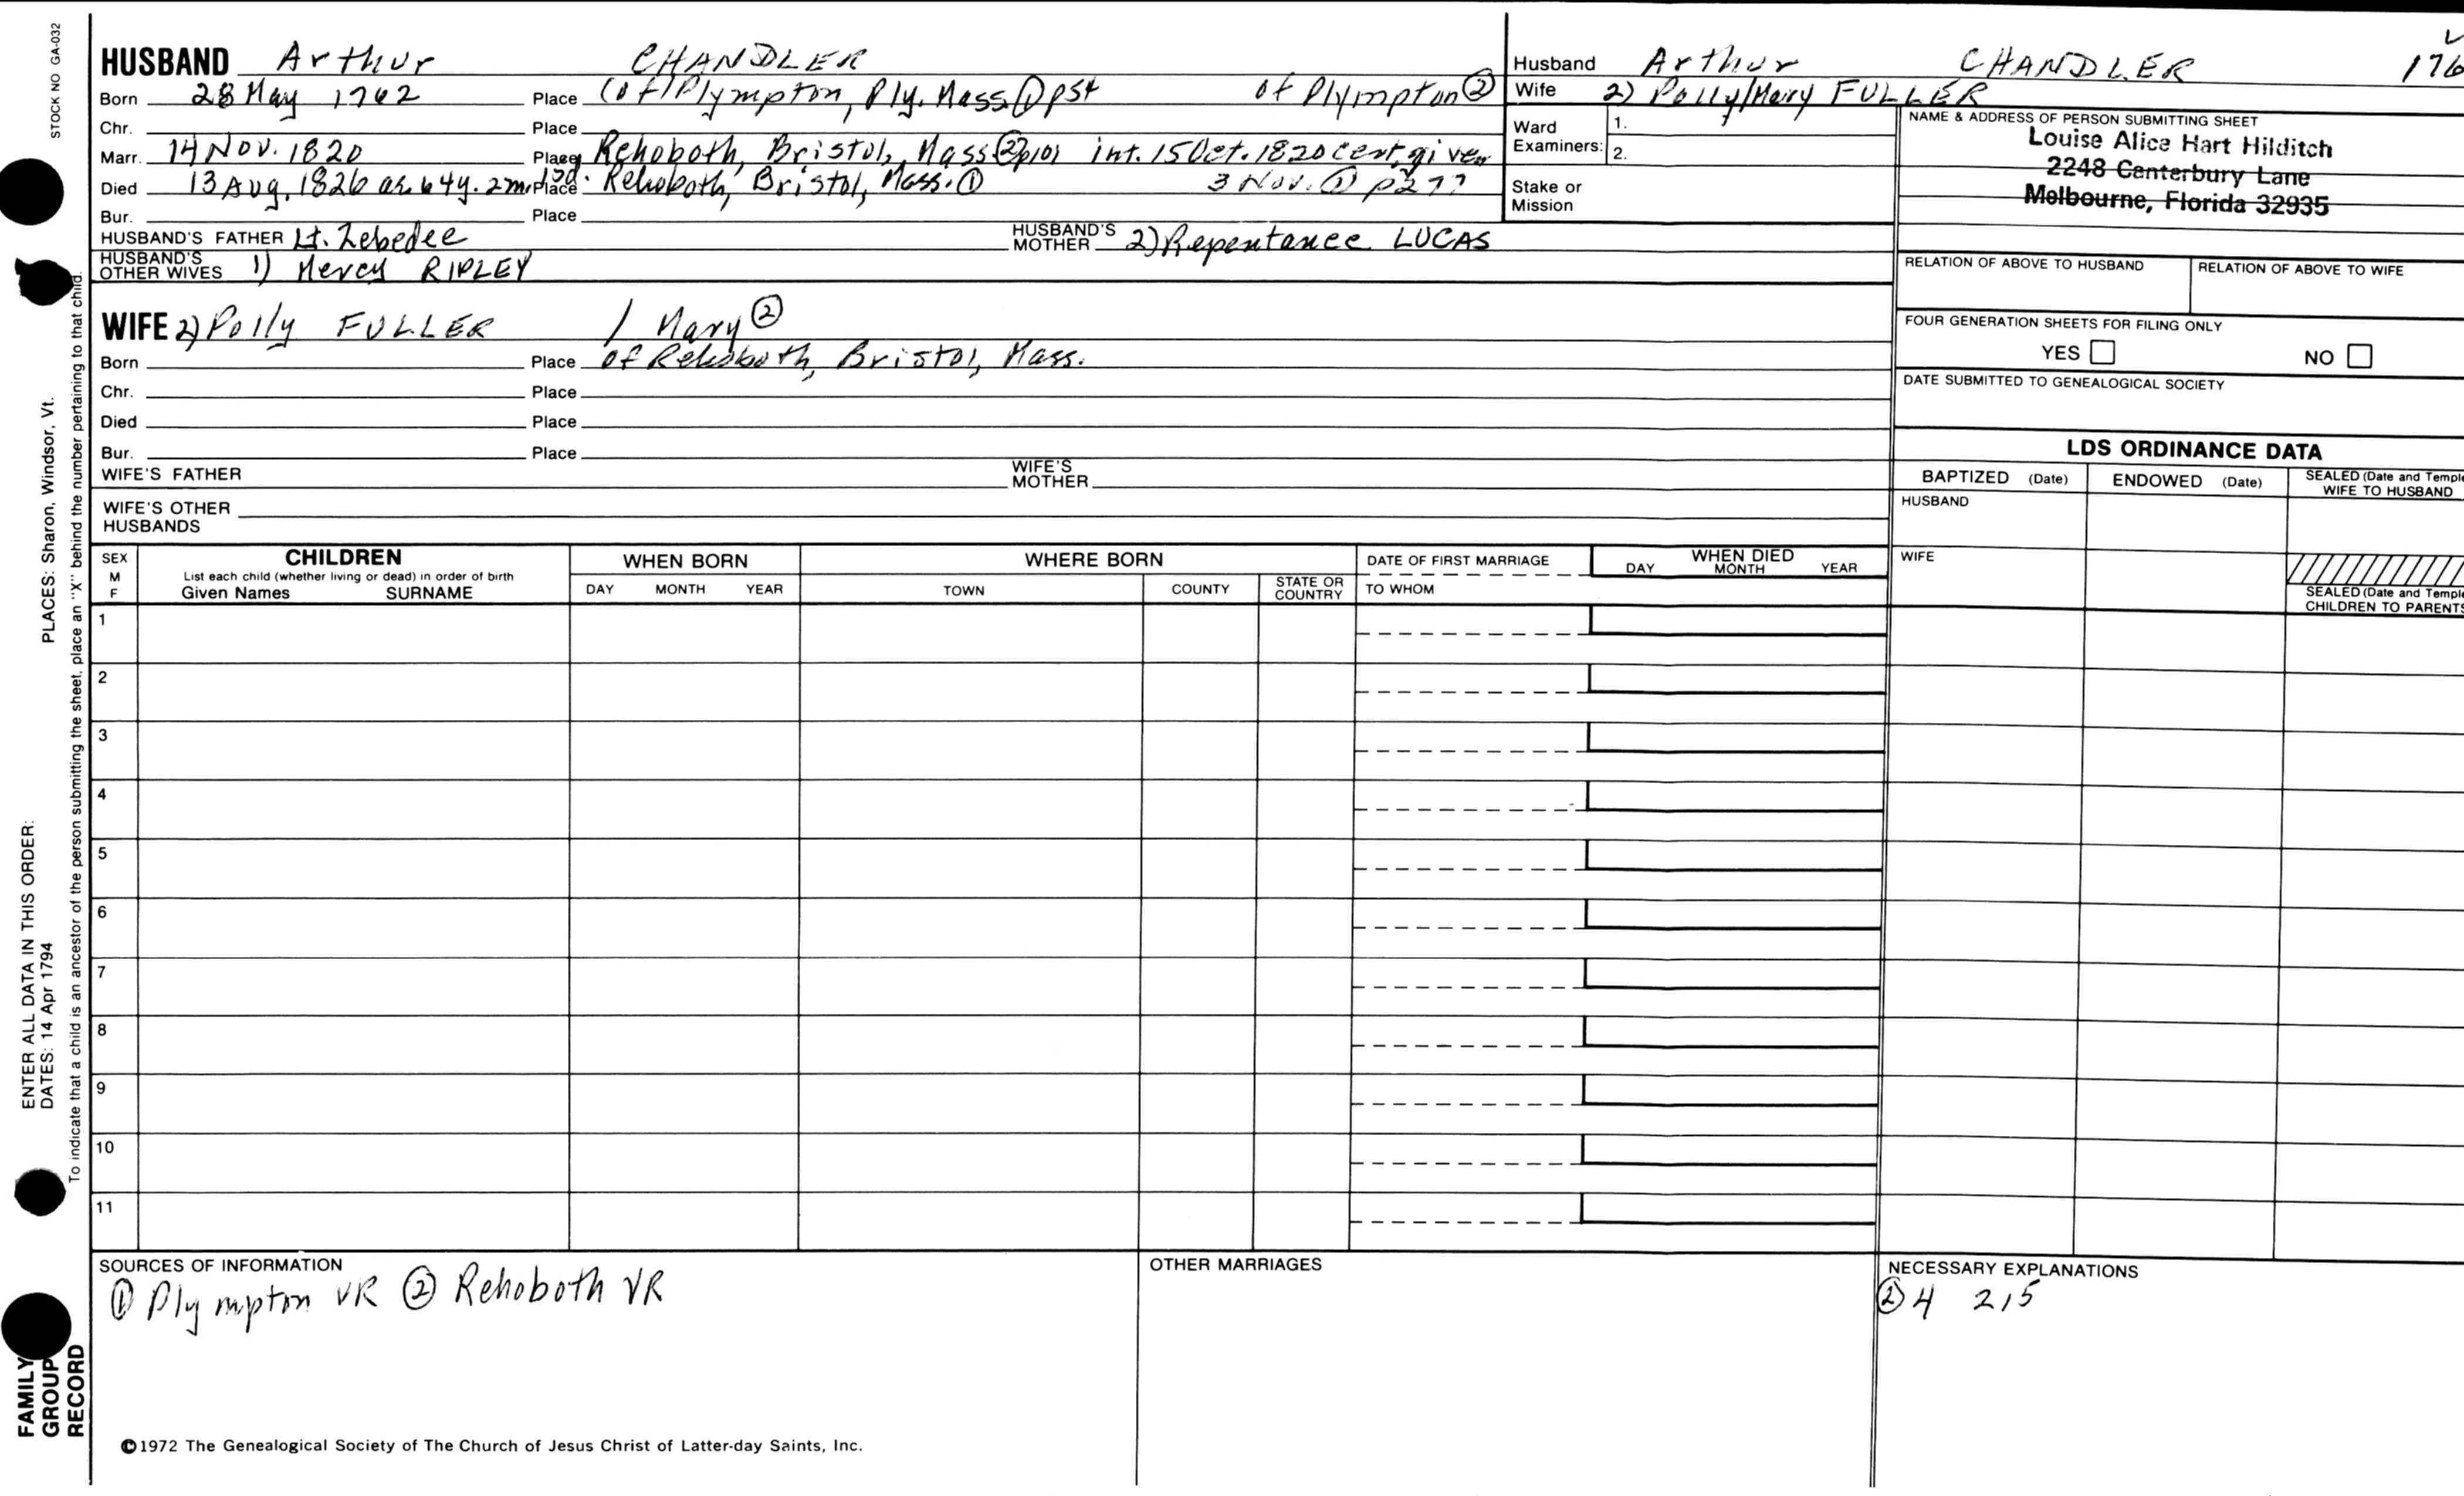 STOCK NO GA-032
PLACES: Sharon, Windsor, Vt.
ENTER ALL DATA IN THIS ORDER:
DATES: 14 Apr 1794
To indicate that a child is an ancestor of the person submitting the sheet, place an "X" behind the number pertaining to that child.
FAMILY
GROUP
RECORD
HUSBAND Arthur CHANDLER
Born 28 May 1762 Place (of) Plympton, Ply. Mass ① p54 of Plympton ②
Chr. Place
Marr. 14 Nov. 1820 Place Rehoboth, Bristol, Mass ② p101 int. 15 Oct. 1820 cert. given
Died 13 Aug. 1826 ae. 64y. 2m. 15d. Place Rehoboth, Bristol, Mass. ① 3 Nov. ① p277
Bur. Place
HUSBAND'S FATHER Lt. Zebedee HUSBAND'S MOTHER 2) Repentance LUCAS
HUSBAND'S OTHER WIVES 1) Mercy RIPLEY
WIFE 2) Polly FULLER / Mary ②
Born Place of Rehoboth, Bristol, Mass.
Chr. Place
Died Place
Bur. Place
WIFE'S FATHER WIFE'S MOTHER
WIFE'S OTHER HUSBANDS
Husband Arthur CHANDLER 176
Wife 2) Polly/Mary FULLER
Ward Examiners: 1.
2.
Stake or Mission
NAME & ADDRESS OF PERSON SUBMITTING SHEET
Louise Alice Hart Hilditch
2248 Canterbury Lane
Melbourne, Florida 32935
RELATION OF ABOVE TO HUSBAND RELATION OF ABOVE TO WIFE
FOUR GENERATION SHEETS FOR FILING ONLY
YES NO
DATE SUBMITTED TO GENEALOGICAL SOCIETY
LDS ORDINANCE DATA
BAPTIZED (Date) ENDOWED (Date) SEALED (Date and Temple
WIFE TO HUSBAND
HUSBAND
WIFE
SEALED (Date and Temple
CHILDREN TO PARENTS
SEX M F CHILDREN WHEN BORN WHERE BORN DATE OF FIRST MARRIAGE WHEN DIED
List each child (whether living or dead) in order of birth
Given Names SURNAME DAY MONTH YEAR TOWN COUNTY STATE OR COUNTRY TO WHOM DAY MONTH YEAR
1
2
3
4
5
6
7
8
9
10
11
SOURCES OF INFORMATION OTHER MARRIAGES NECESSARY EXPLANATIONS
① Plympton VR ② Rehoboth VR
② 4 215
©1972 The Genealogical Society of The Church of Jesus Christ of Latter-day Saints, Inc.